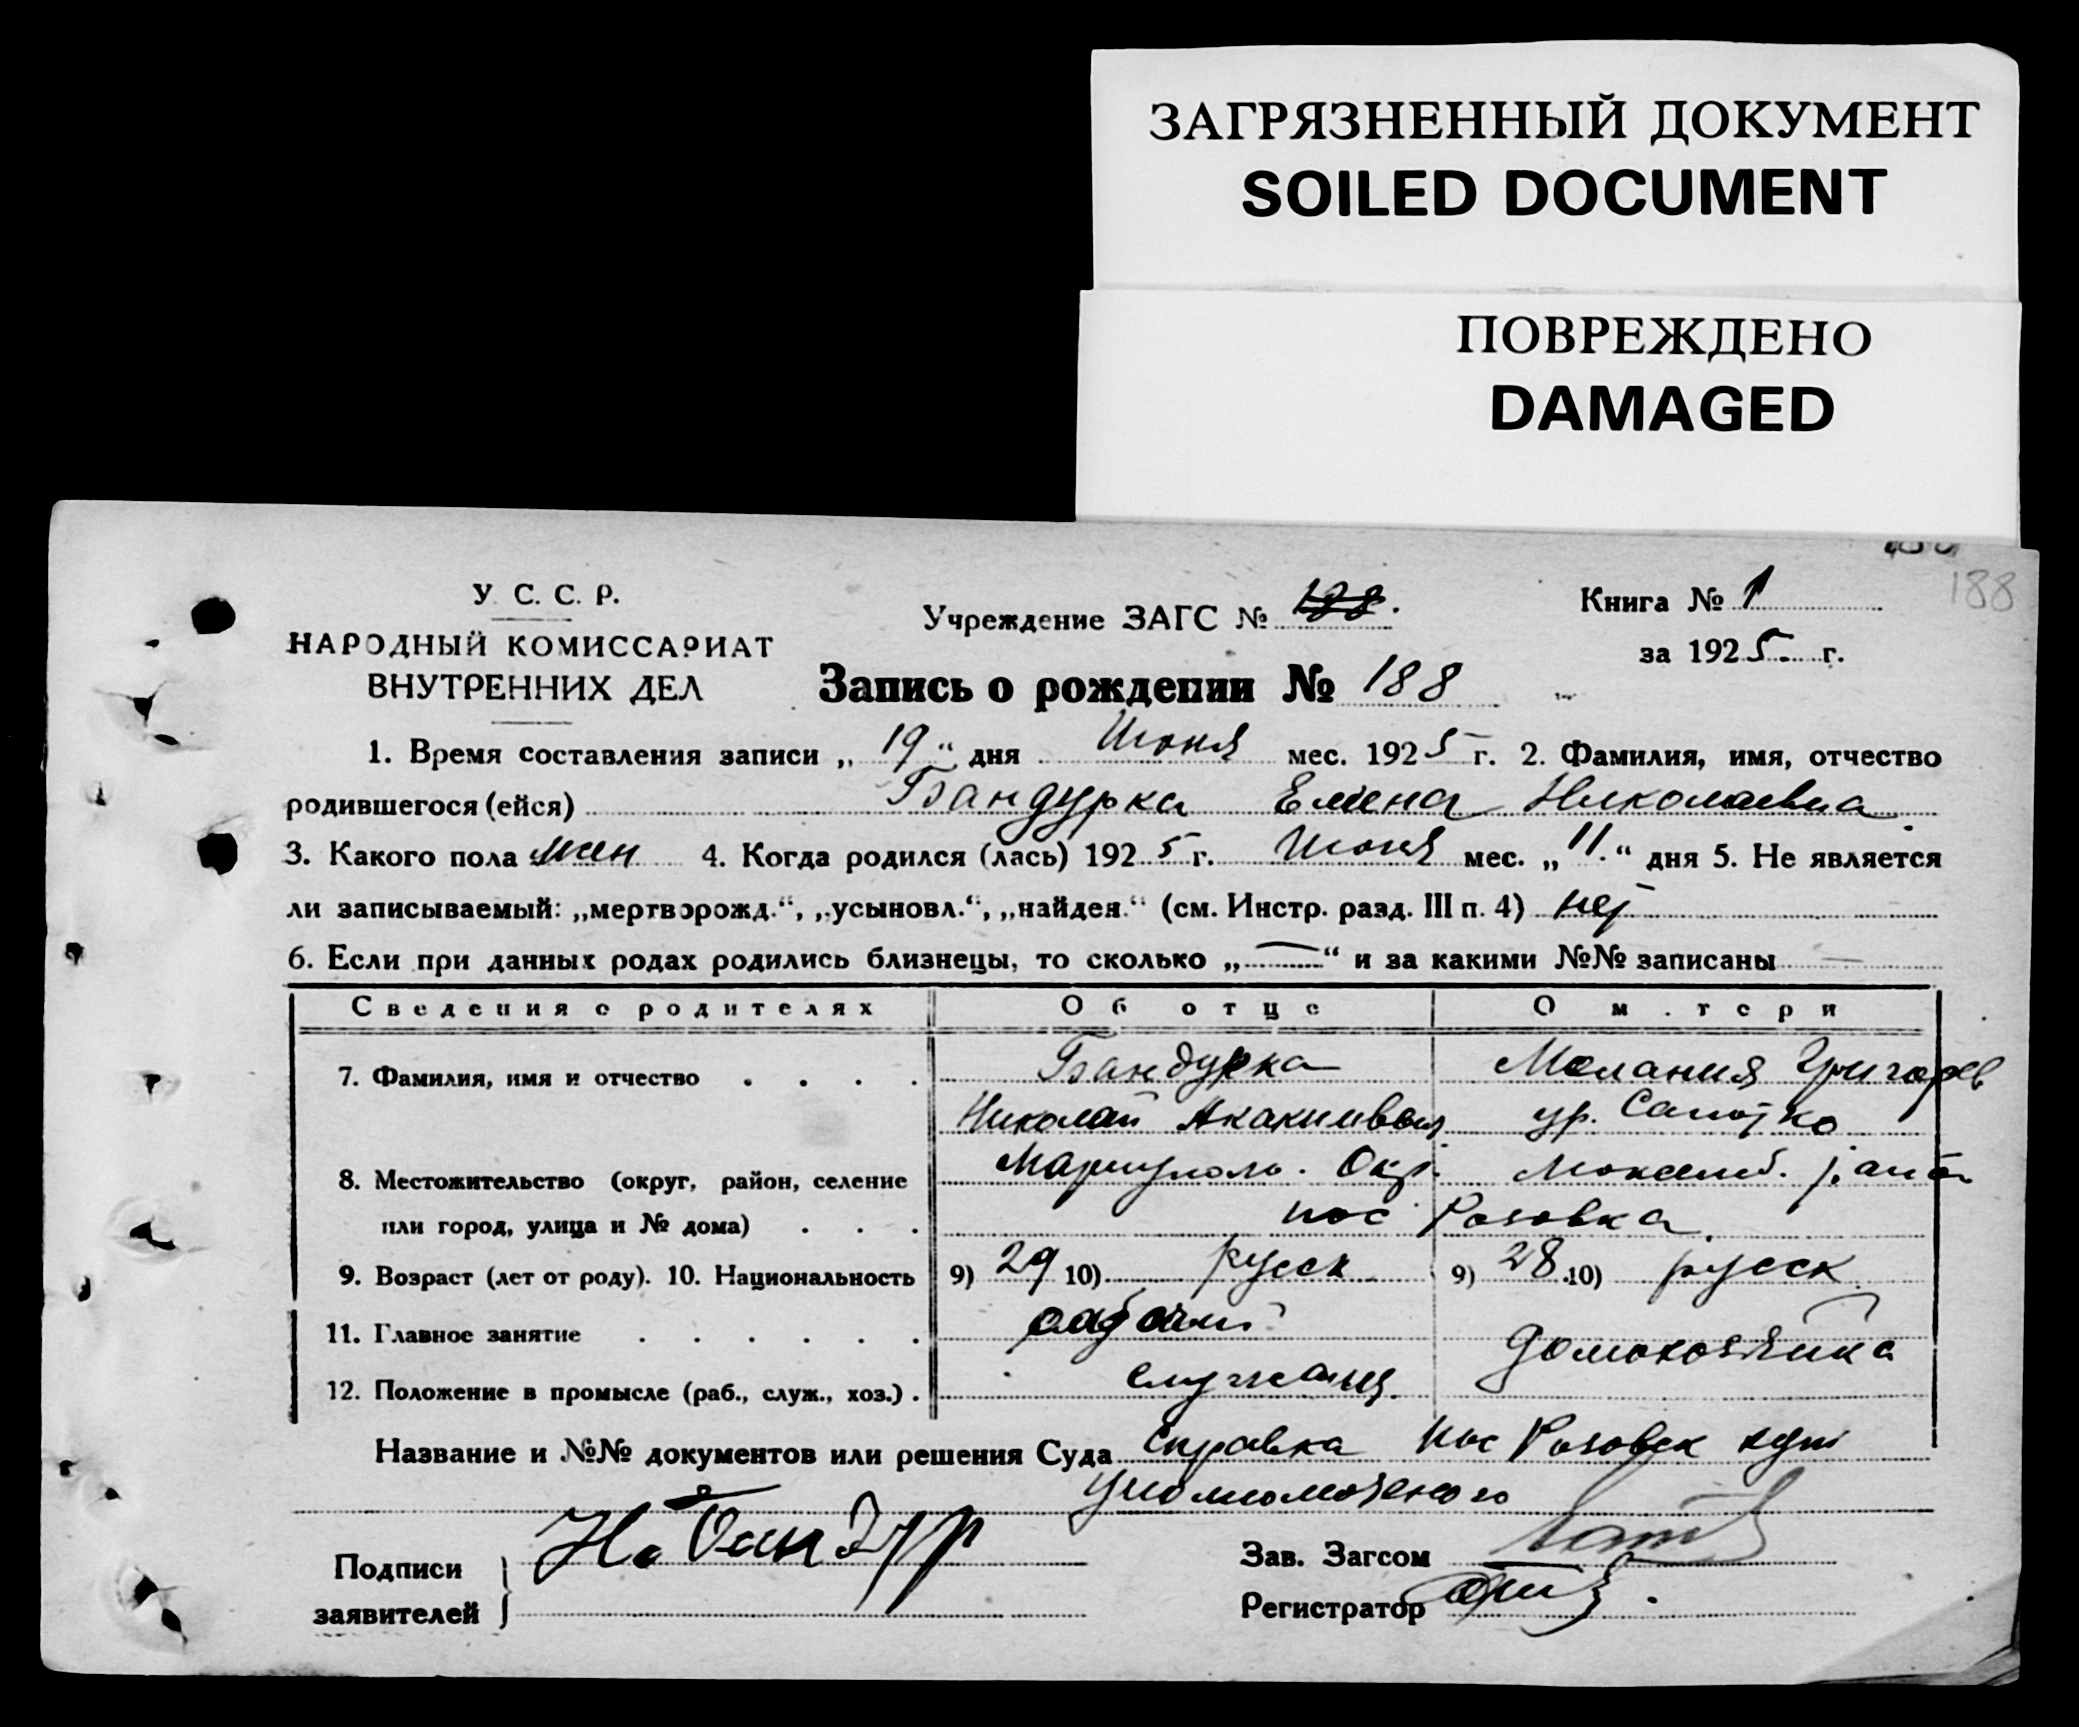 ЗАГРЯЗНЕННЫЙ ДОКУМЕНТ
SOILED DOCUMENT
ПОВРЕЖДЕНО
DAMAGED
188
У. С. С. Р.
НАРОДНЫЙ КОМИССАРИАТ
ВНУТРЕННИХ ДЕЛ
Учреждение ЗАГС № 188.
Книга № 1
за 1925 г.
Запись о рождении № 188
1. Время составления записи „19“ дня Июня мес. 1925 г. 2. Фамилия, имя, отчество
родившегося (ейся) Бандурка Елена Николаевна
3. Какого пола жен 4. Когда родился (лась) 1925 г. Июня мес. „11.“ дня 5. Не является
ли записываемый: „мертворожд.“, „усыновл.“, „найден.“ (см. Инстр. разд. III п. 4) нет
6. Если при данных родах родились близнецы, то сколько „—“ и за какими №№ записаны —
Сведения о родителях Об отце О м.тери
7. Фамилия, имя и отчество . . . . Бандурка Мелания Григорьев
Николай Акакиевич ур. Сапотко
8. Местожительство (округ, район, селение Мариуполь. Окр.
или город, улица и № дома) . . . пос Розовка
9. Возраст (лет от роду). 10. Национальность 9) 29 10) русск 9) 28 10) русск
11. Главное занятие . . . . . . рабочий домохозяйка
12. Положение в промысле (раб., служ., хоз.) . служащ.
Название и №№ документов или решения Суда Справка пос Розовск
уполномоченого
Подписи заявителей Н. Бандур
Зав. Загсом
Регистратор